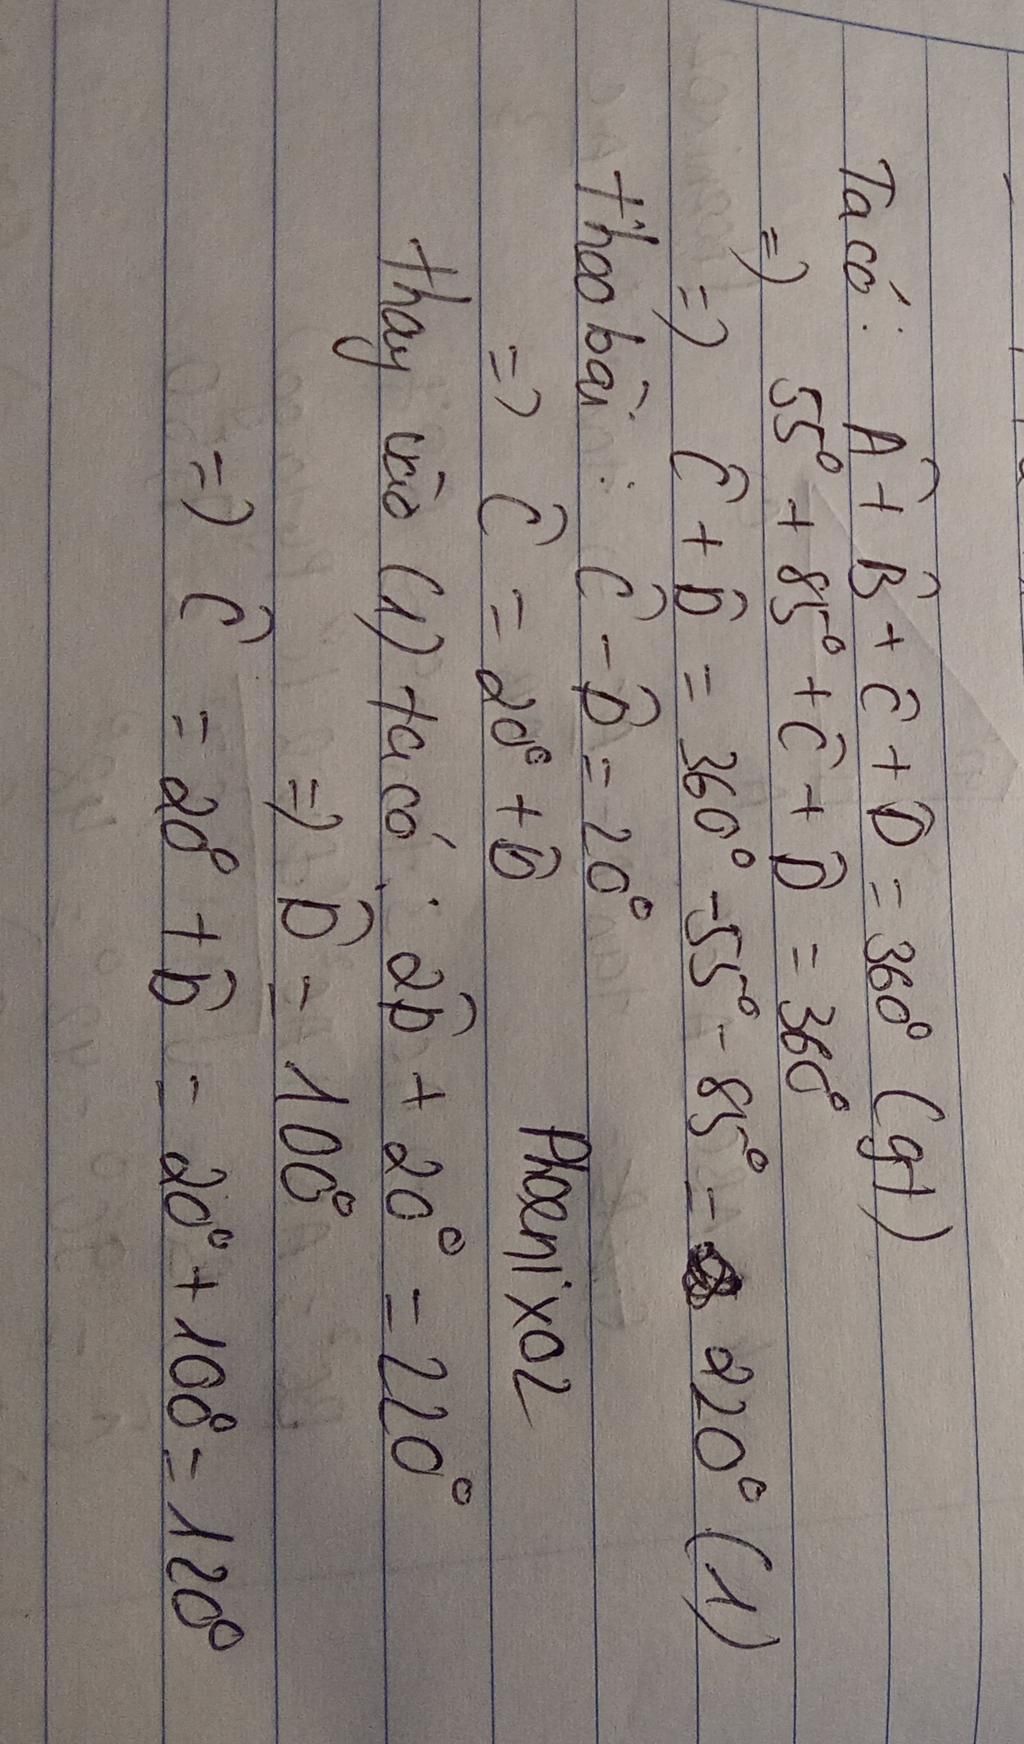 Ta có: Â + B̂ + Ĉ + D̂ = 360° (gt)
=> 55° + 85° + Ĉ + D̂ = 360°
=> Ĉ + D̂ = 360° - 55° - 85° = 220° (1)
theo bài: Ĉ - D̂ = 20°
=> Ĉ = 20° + D̂
Phoenix02
thay vào (1) ta có: 2D̂ + 20° = 220°
=> D̂ = 100°
=> Ĉ = 20° + D̂ = 20° + 100° = 120°